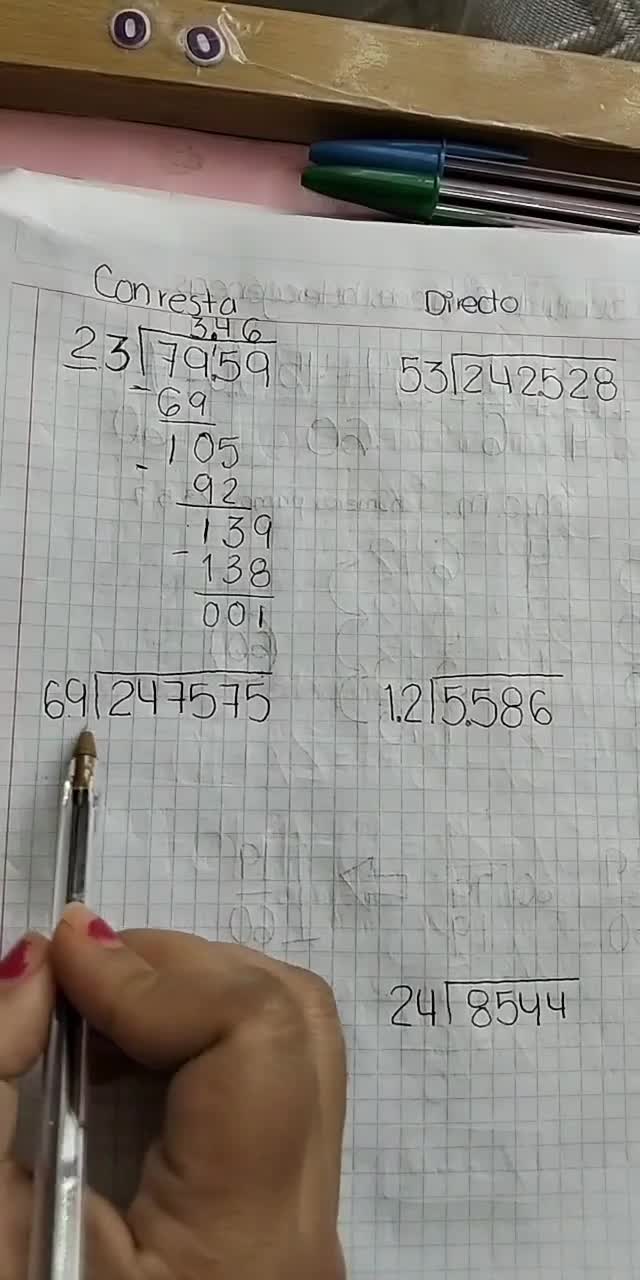 Con resta
3.46
23 79.59
- 69
105
- 92
139
- 138
001
Directo
53 242.528
6.9 247575
1.2 5.586
24 8544